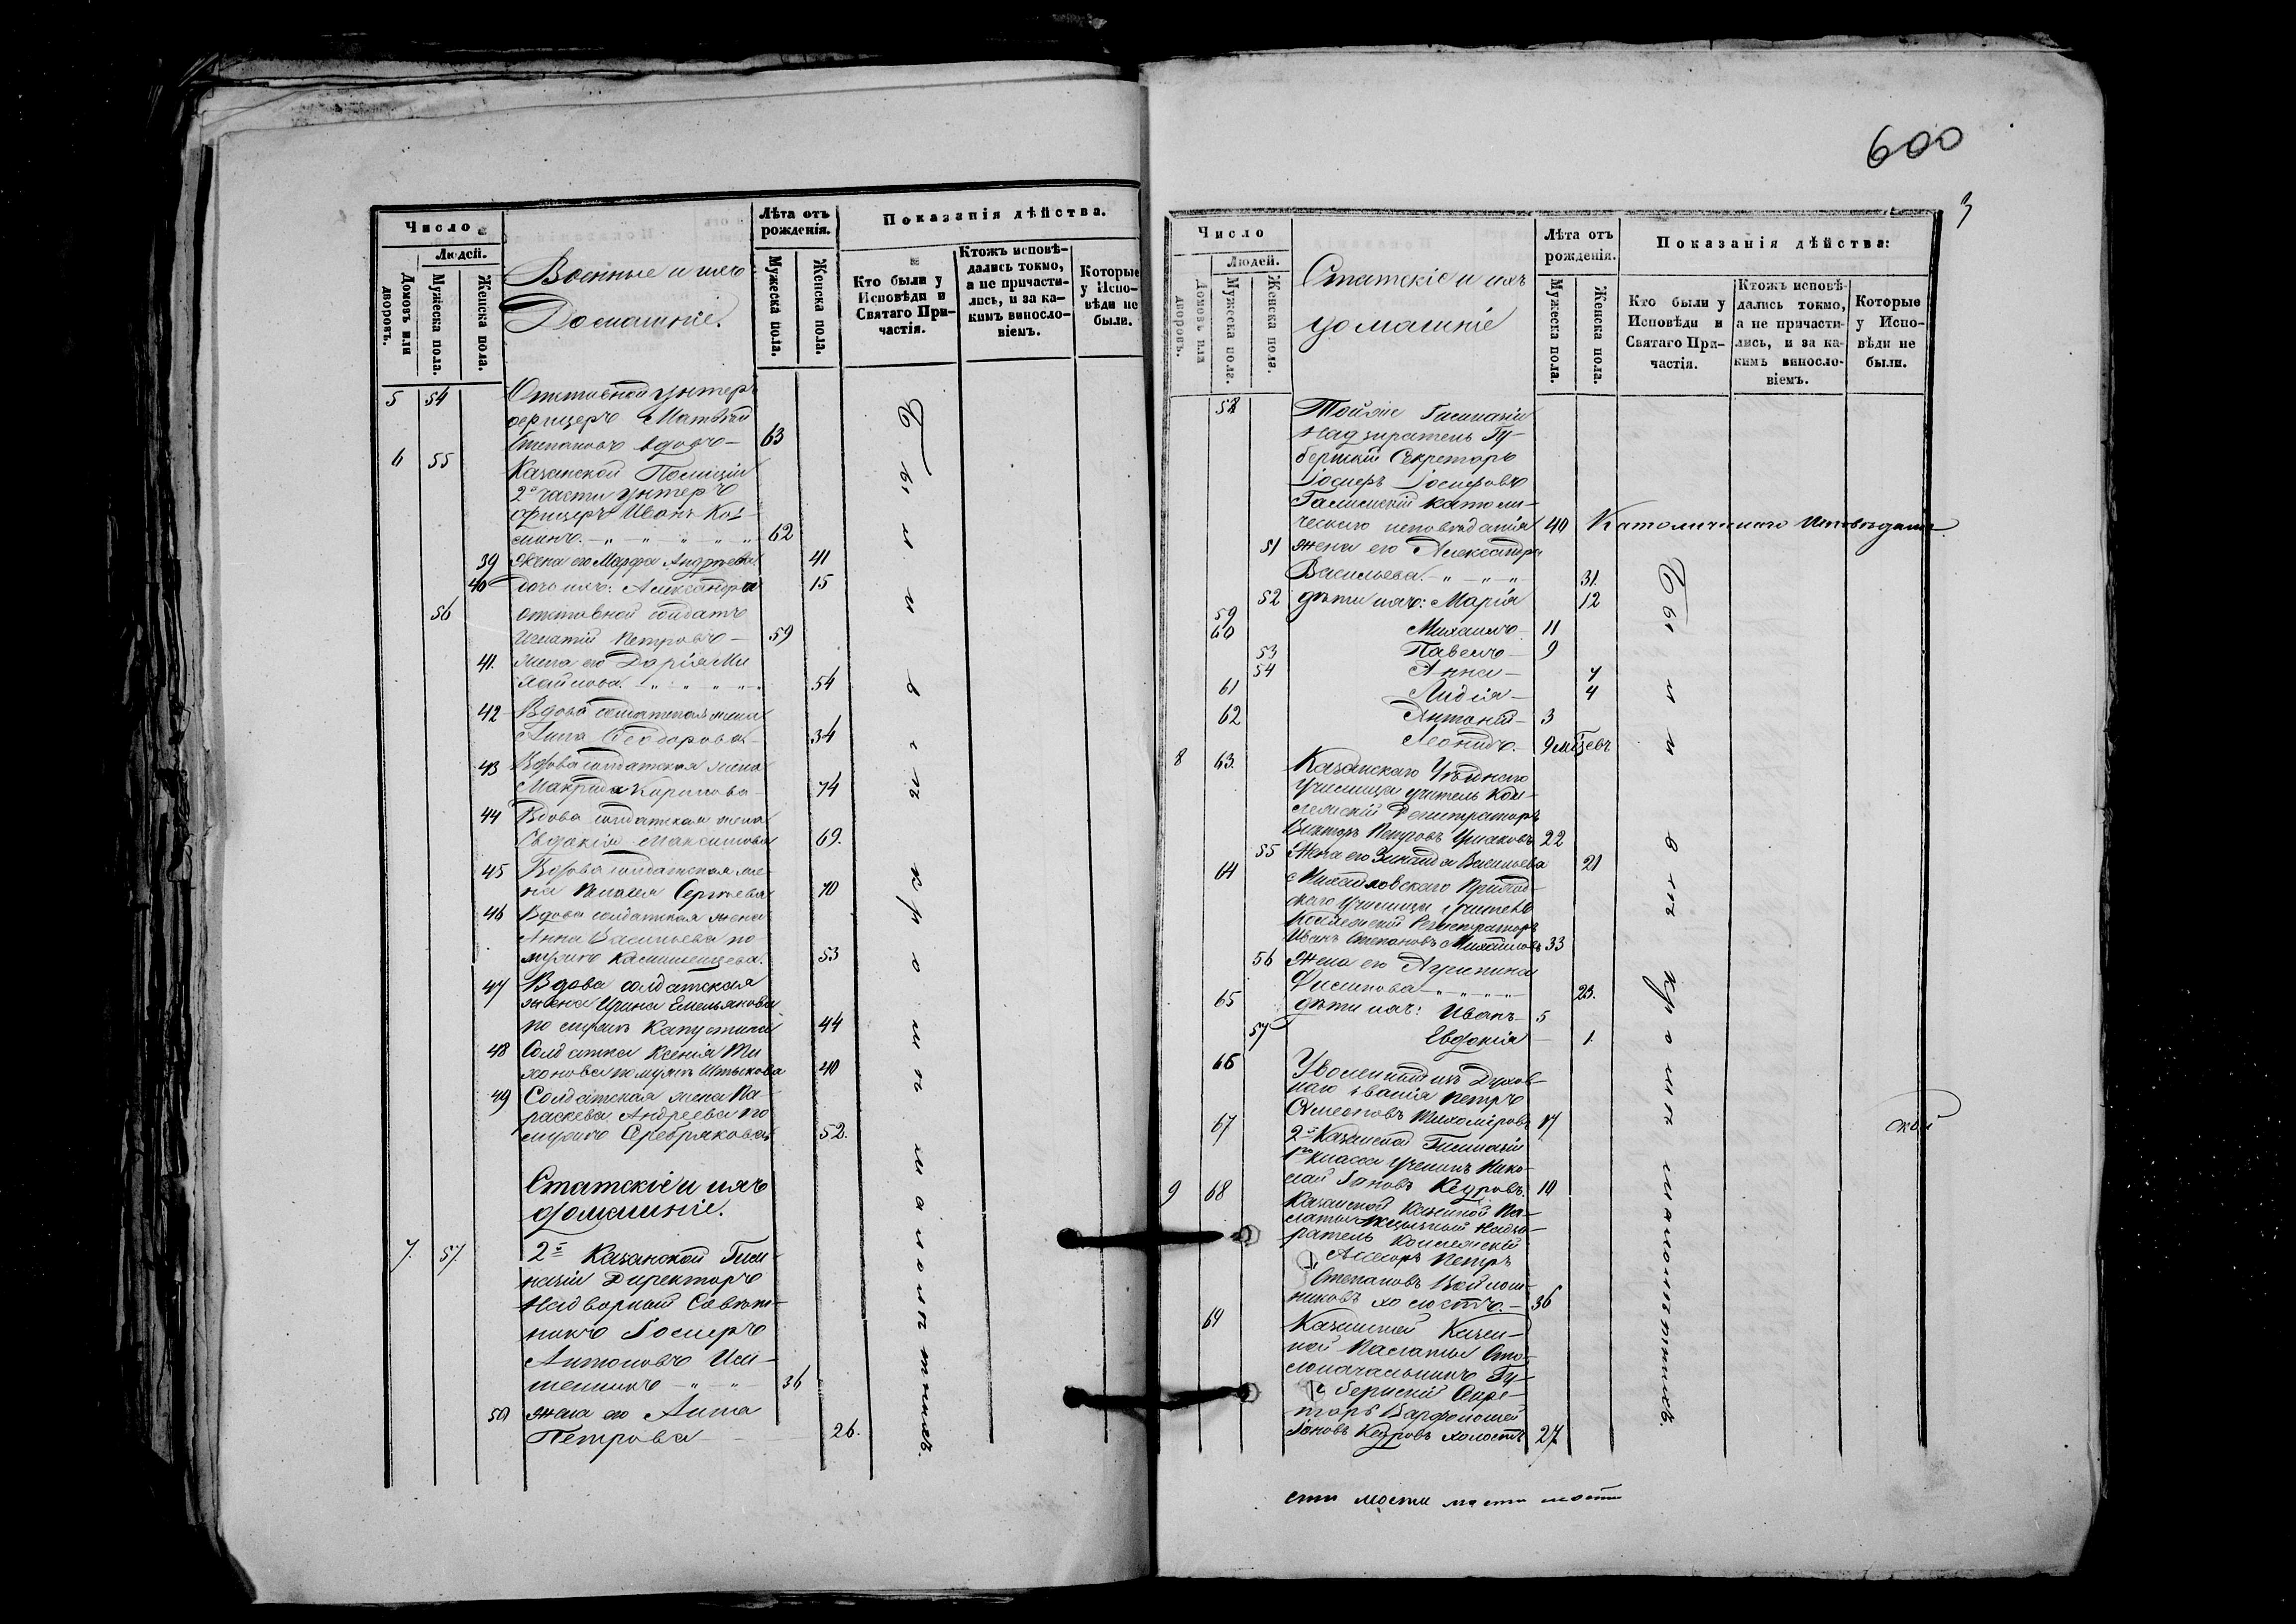 Число
Людей.
Домовъ или дворовъ.
Мужеска пола.
Женска пола.
Военные и ихъ
Домашніе.
Лѣта отъ рожденія.
Мужеска пола.
Женска пола.
Показанія дѣйства.
Кто были у Исповѣди и Святаго Причастія.
Ктожъ исповѣдались токмо, а не причастились, и за какимъ винословіемъ.
Которые у Исповѣди не были.
5 54 Отставной унтеръ
офицеръ Матвѣй
Степановъ вдовъ — 63
6 55 Казанской Полиціи
2й части унтеръ
офицеръ Иванъ
62
39 жена его Марфа Андреева 41
40 дочь ихъ: Александра 15
56 отставной солдатъ
Игнатій Петровъ — 59
41. жена его Дарія Ми
хайлова. 54
42 Вдова солдатская жена
Анна Ѳеодорова — 34
43 Вдова солдатская жена
Макрида Кирилова — 74
44 Вдова солдатская жена
Евдокія Максимова 69.
45 Вдова солдатская же-
на Пелагея Сергѣева 70
46 Вдова солдатская жена
Анна Васильева по
мужѣ 53
47 Вдова солдатская
жена Ирина Емельянова
по мужѣ Капустина 44
48 Солдатка Ксенія Ти
хонова по мужѣ Штыкова 40
49 Солдатская жена Па-
раскева Андреева по
мужѣ Серебрякова 52.
Статскіе и ихъ
домашніе.
7. 57. 2й Казанской Гим-
назіи Директоръ
Надворный Совѣт-
никъ Іосифъ
Антоновъ
36
50 жена его Анна
Петрова — 26.
Были въ
600
3
Число
Людей.
Домовъ или дворовъ.
Мужеска пола.
Женска пола.
Статскіе и ихъ
домашніе
Лѣта отъ рожденія.
Мужеска пола.
Женска пола.
Показанія дѣйства:
Кто были у Исповѣди и Святаго Причастія.
Ктожъ исповѣдались токмо, а не причастились, и за какимъ винословіемъ.
Которые у Исповѣди не были.
58 Тойже Гимназіи
Надзиратель Гу-
бернскій Секретарь
Іосифъ Іосифовъ
католи-
ческаго исповѣданія 40 Католическаго Исповѣданія
51 жена его Александра
Васильева. 31.
52 дѣти ихъ: Марія 12
59 Михаилъ 11
60 Павелъ 9
53 Анна — 7
54 Лидія — 4
61 Антоній — 3
62 Леонидъ. — 9 мѣсцевъ
8 63. Казанскаго Уѣзднаго
Училища учитель Кол-
лежскій Регистраторъ
Викторъ Петровъ Ушаковъ 22
55 Жена его Зинаида Васильева 21
64 Михайловскаго Приход-
скаго Училища учитель
Коллежскій Регистраторъ
Иванъ Степановъ Михайловъ 33
56 жена его Агрипина
Филипова 23.
65 дѣти ихъ: Иванъ 5
57 Евдокія — 1.
66 Уволенный изъ Духов-
наго званія Петръ
Симеоновъ Тихоміровъ 17
67 2й Казанской Гимназіи
класса Ученикъ Нико-
лай Іоновъ Кедровъ. 10
9 68 Казанской Казенной Па-
латы Надзи-
ратель Коллежскій
Ассесоръ Петръ
Степановъ
холостъ. — 36
69 Казанской Казен-
ной Палаты Сто-
лоначальникъ Гу-
бернскій Секре-
тарь Варфоломей
Іоновъ Кедровъ холостъ 27
Были въ
ской
сти мости мости мости